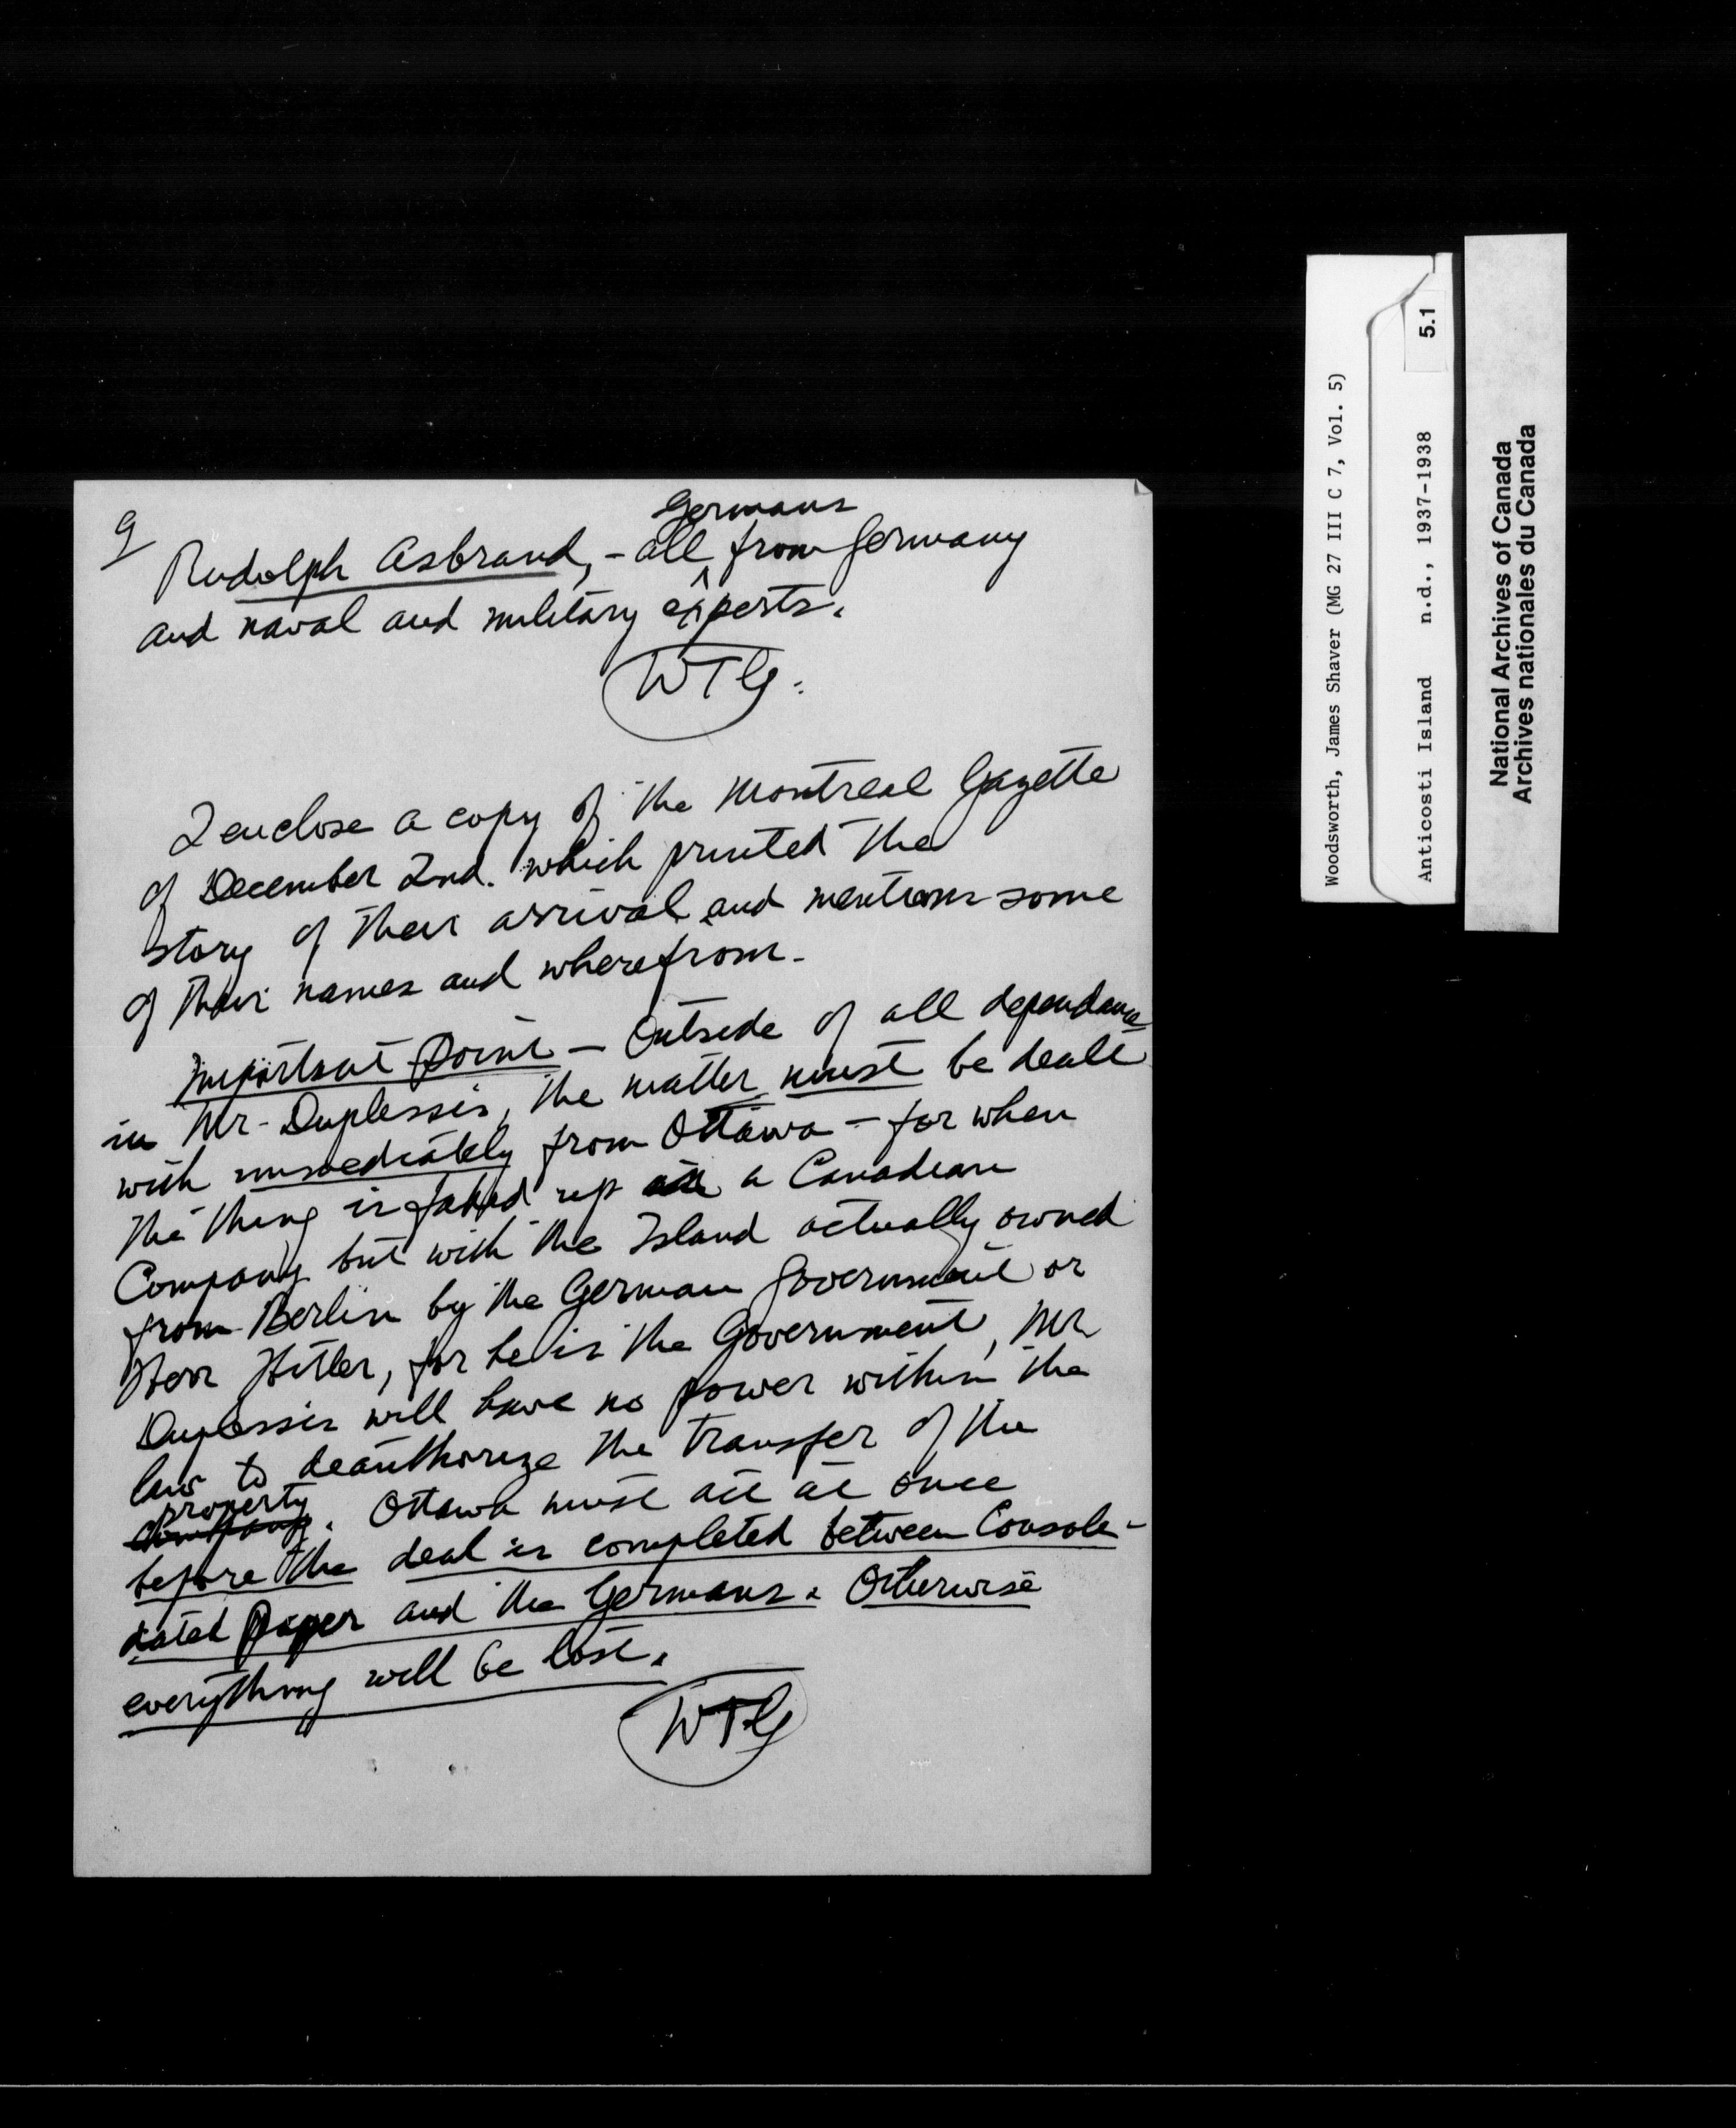 9
Rudolph Asbrand, - all Germans from Germany
and naval and military experts.
WTG.
I enclose a copy of the Montreal Gazette
of December 2nd. which printed the
story of their arrival and mentions some
of their names and wherefrom.
Important Point - Outside of all dependance
in Mr. Duplessis, the matter must be dealt
with immediately from Ottawa - for when
the thing is faked up a Canadian
Company but with the Island actually owned
from Berlin by the German Government or
Herr Hitler, for he is the Government, Mr
Duplessis will have no power within the
law to deauthorize the transfer of the
property. Ottawa must act at once
before the deal is completed between Consoli-
dated Paper and the Germans. Otherwise
everything will be lost.
WTG
Woodsworth, James Shaver (MG 27 III C 7, Vol. 5)
Anticosti Island n.d., 1937-1938 5.1
National Archives of Canada
Archives nationales du Canada